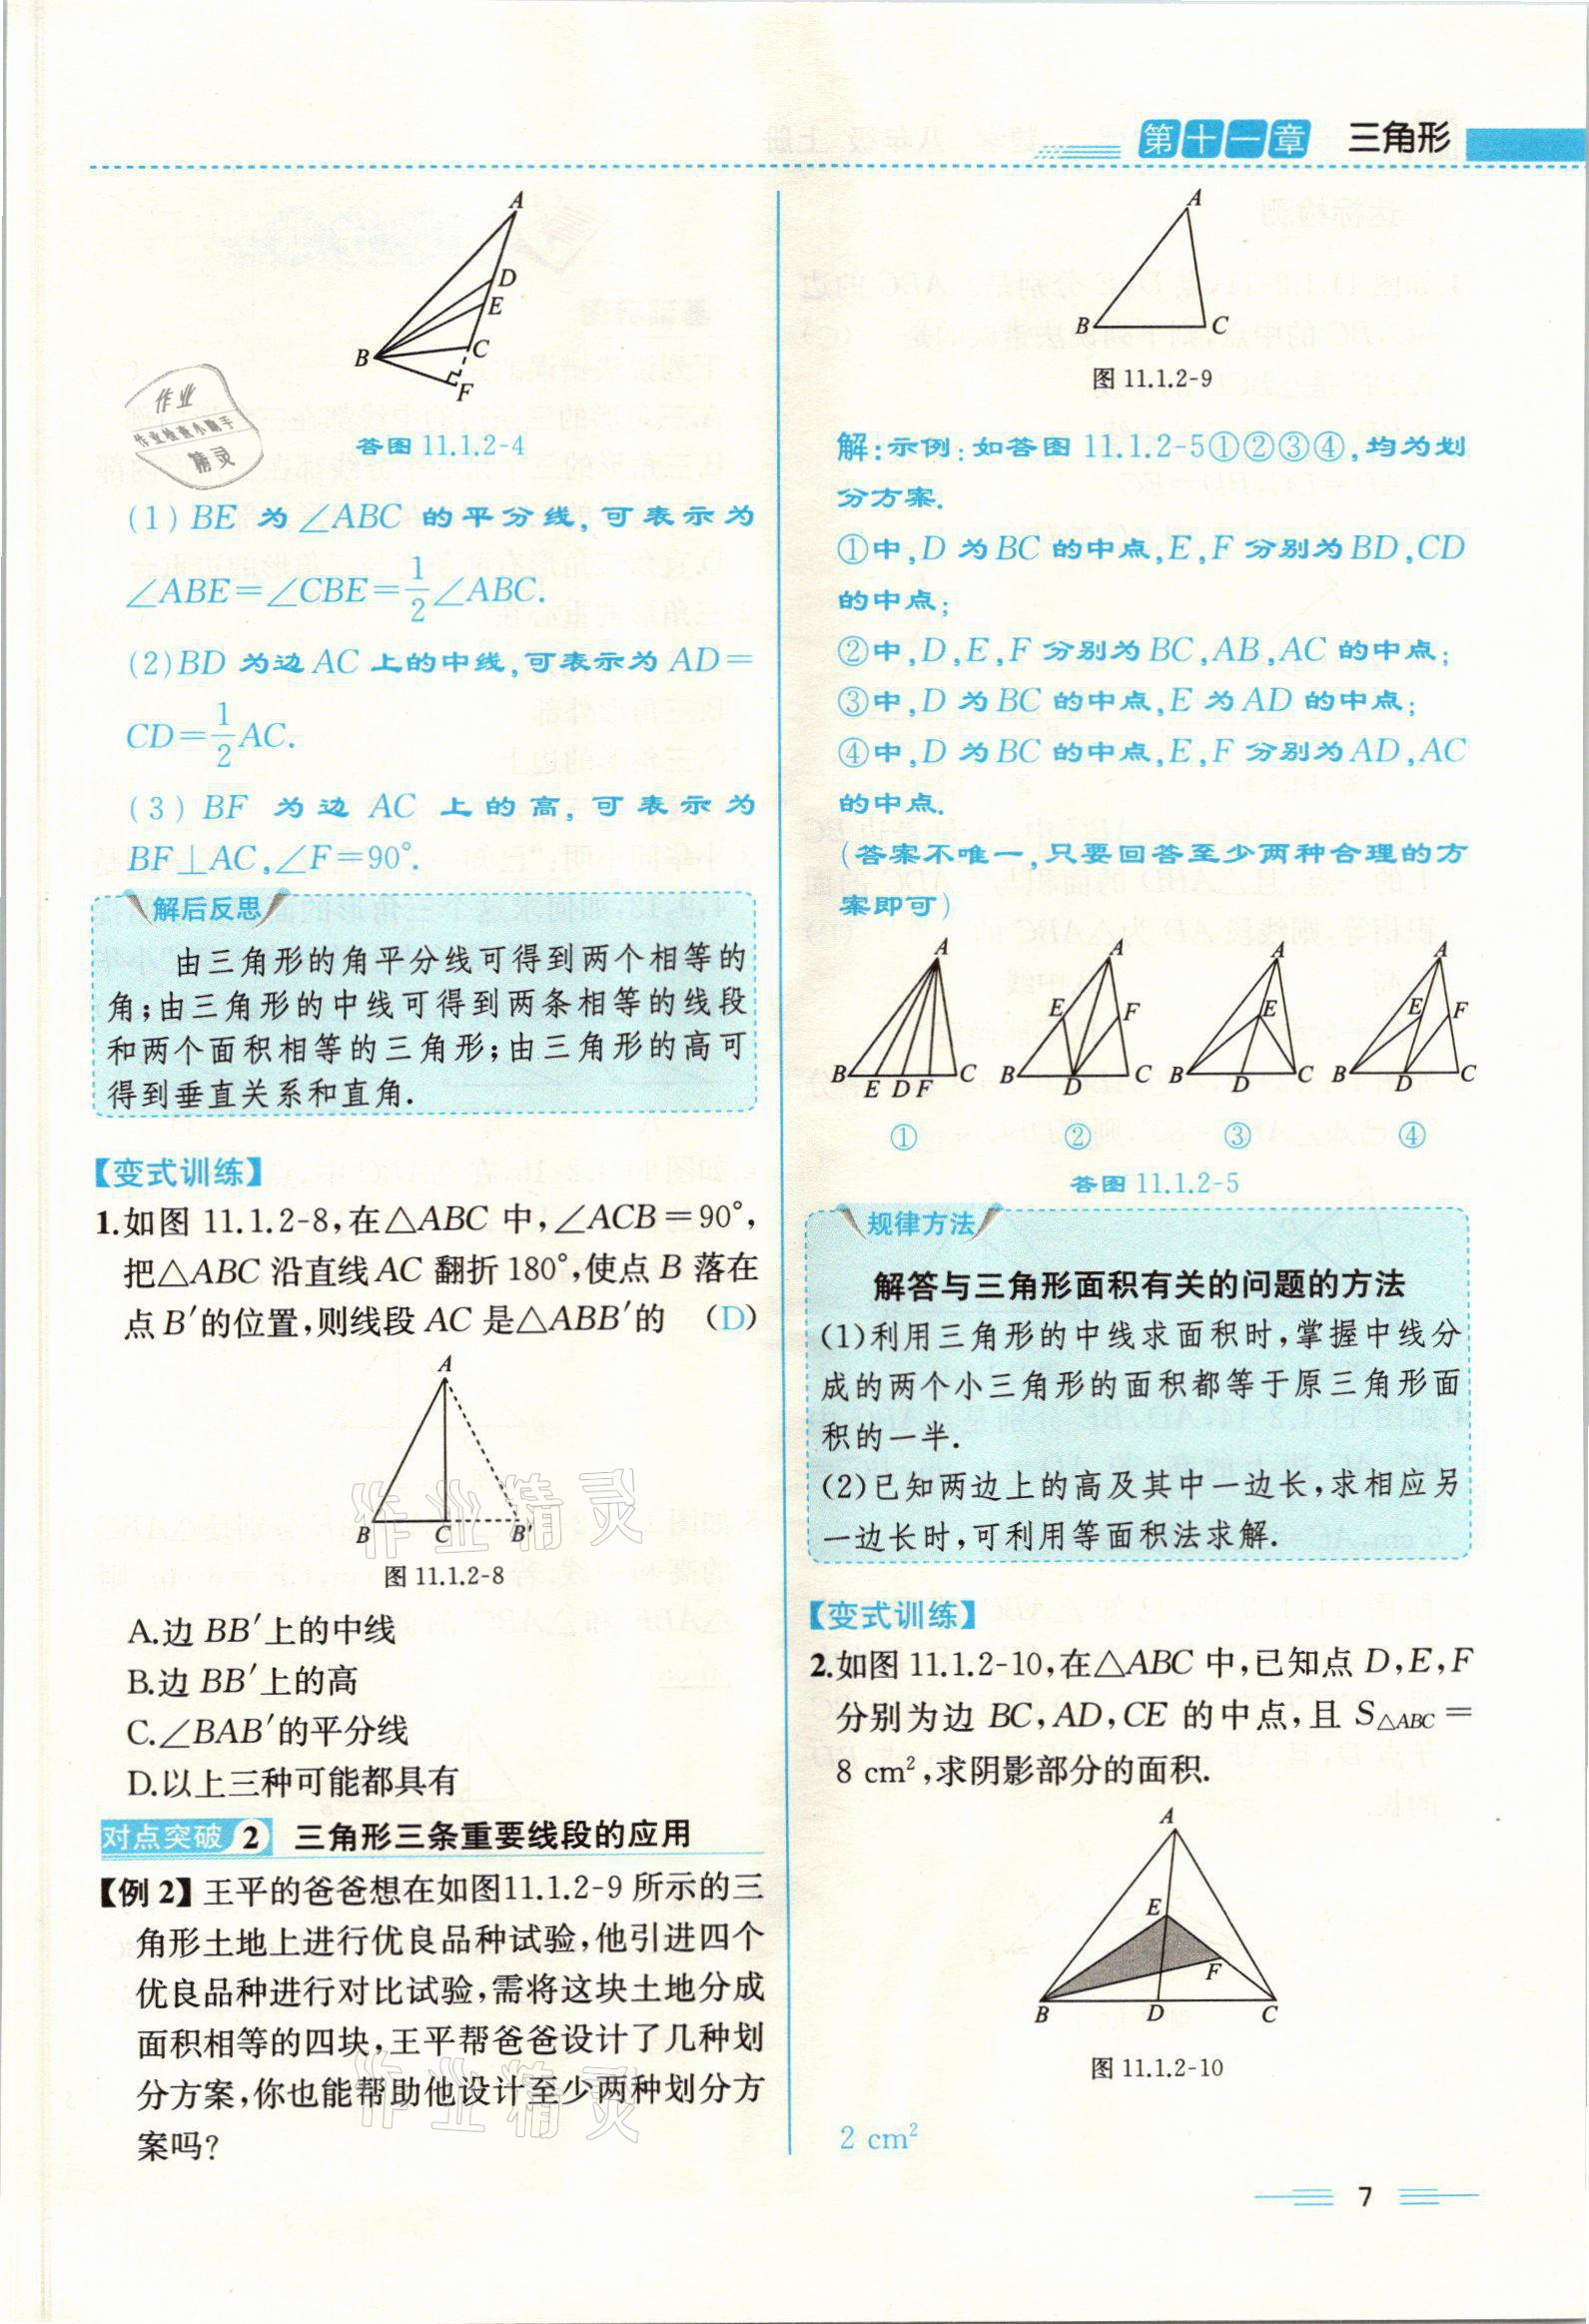 第十一章 三角形
A
D
E
B
C
F
答图 11.1.2-4
作业
作业检查小助手
精灵
(1) BE 为∠ABC 的平分线,可表示为
∠ABE=∠CBE=1/2∠ABC.
(2)BD 为边 AC 上的中线,可表示为 AD=
CD=1/2AC.
(3) BF 为边 AC 上的高,可表示为
BF⊥AC,∠F=90°.
解后反思
由三角形的角平分线可得到两个相等的
角;由三角形的中线可得到两条相等的线段
和两个面积相等的三角形;由三角形的高可
得到垂直关系和直角.
【变式训练】
1.如图 11.1.2-8,在△ABC 中,∠ACB=90°,
把△ABC 沿直线 AC 翻折 180°,使点 B 落在
点 B′的位置,则线段 AC 是△ABB′的 (D)
A
B C B′
图 11.1.2-8
作业精灵
A.边 BB′上的中线
B.边 BB′上的高
C.∠BAB′的平分线
D.以上三种可能都具有
对点突破 2 三角形三条重要线段的应用
【例 2】王平的爸爸想在如图11.1.2-9 所示的三
角形土地上进行优良品种试验,他引进四个
优良品种进行对比试验,需将这块土地分成
面积相等的四块,王平帮爸爸设计了几种划
分方案,你也能帮助他设计至少两种划分方
案吗?
作业精灵
A
B C
图 11.1.2-9
解:示例:如答图 11.1.2-5①②③④,均为划
分方案.
①中,D 为 BC 的中点,E,F 分别为 BD,CD
的中点;
②中,D,E,F 分别为 BC,AB,AC 的中点;
③中,D 为 BC 的中点,E 为 AD 的中点;
④中,D 为 BC 的中点,E,F 分别为 AD,AC
的中点.
(答案不唯一,只要回答至少两种合理的方
案即可)
A A A A
E F E E F
B E D F C B D C B D C B D C
① ② ③ ④
答图 11.1.2-5
规律方法
解答与三角形面积有关的问题的方法
(1)利用三角形的中线求面积时,掌握中线分
成的两个小三角形的面积都等于原三角形面
积的一半.
(2)已知两边上的高及其中一边长,求相应另
一边长时,可利用等面积法求解.
【变式训练】
2.如图 11.1.2-10,在△ABC 中,已知点 D,E,F
分别为边 BC,AD,CE 的中点,且 S△ABC=
8 cm²,求阴影部分的面积.
A
E
F
B D C
图 11.1.2-10
2 cm²
7